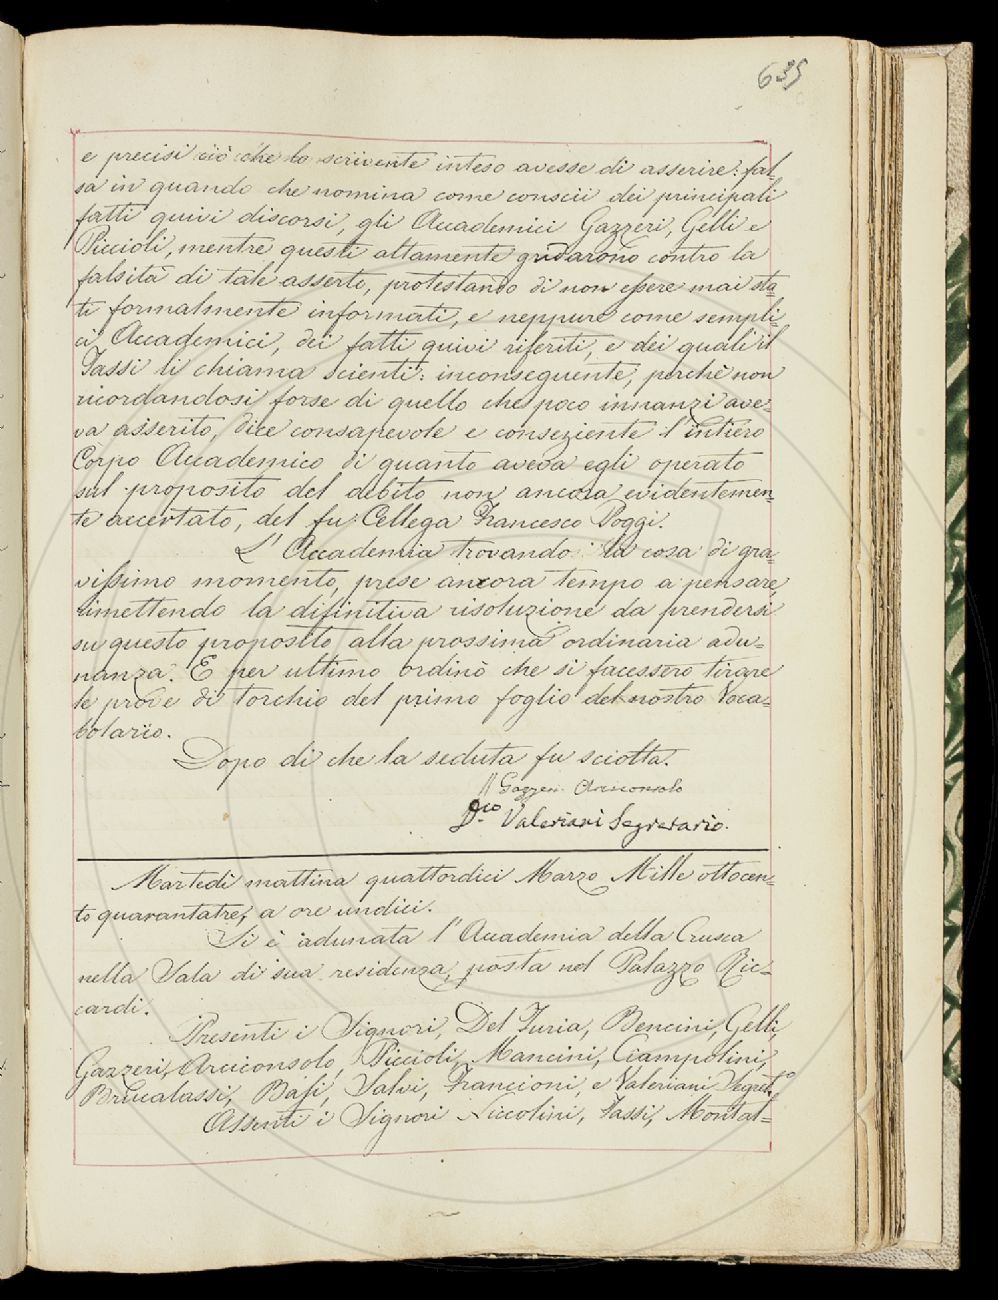 635
e precisi ciò che lo scrivente inteso avesse di asserire: fal-
sa in quando che nomina come conscii dei principali
fatti quivi discorsi, gli Accademici Gazzeri, Gelli e
Piccioli, mentre questi altamente gridarono contro la
falsità di tale asserto, protestando di non essere mai sta-
ti formalmente informati, e neppure come sempli-
ci Accademici, dei fatti quivi riferiti, e dei quali il
Tassi li chiama scienti: inconseguente, perchè non
ricordandosi forse di quello che poco innanzi ave-
va asserito, dice consapevole e conseziente l'intiero
Corpo Accademico di quanto aveva egli operato
sul proposito del debito non ancora evidentemen-
te accertato, del fu Collega Francesco Poggi.
L'Accademia trovando la cosa di gra-
vissimo momento, prese ancora tempo a pensare,
rimettendo la difinitiva risoluzione da prendersi
su questo proposito alla prossima ordinaria adu-
nanza. E per ultimo ordinò che si facessero tirare
le prove di torchio del primo foglio del nostro Voca-
bolario.
Dopo di che la seduta fu sciolta.
Gazzeri Arciconsolo
Dco Valeriani Segretario.
Martedì mattina quattordici Marzo Mille ottocen-
to quarantatre, a ore undici.
Si è adunata l'Accademia della Crusca
nella Sala di sua residenza, posta nel Palazzo Ric-
cardi.
Presenti i Signori, Del Furia, Bencini, Gelli,
Gazzeri, Arciconsolo, Piccioli, Mancini, Ciampolini,
Brucalassi, Basi, Salvi, Francioni, e Valeriani Segret.o
Assenti i Signori Niccolini, Tassi, Montal-